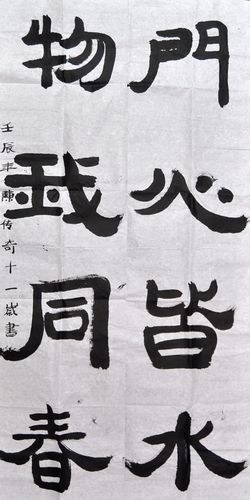 門心皆水
物我同春
壬辰年陳传奇十一歲書